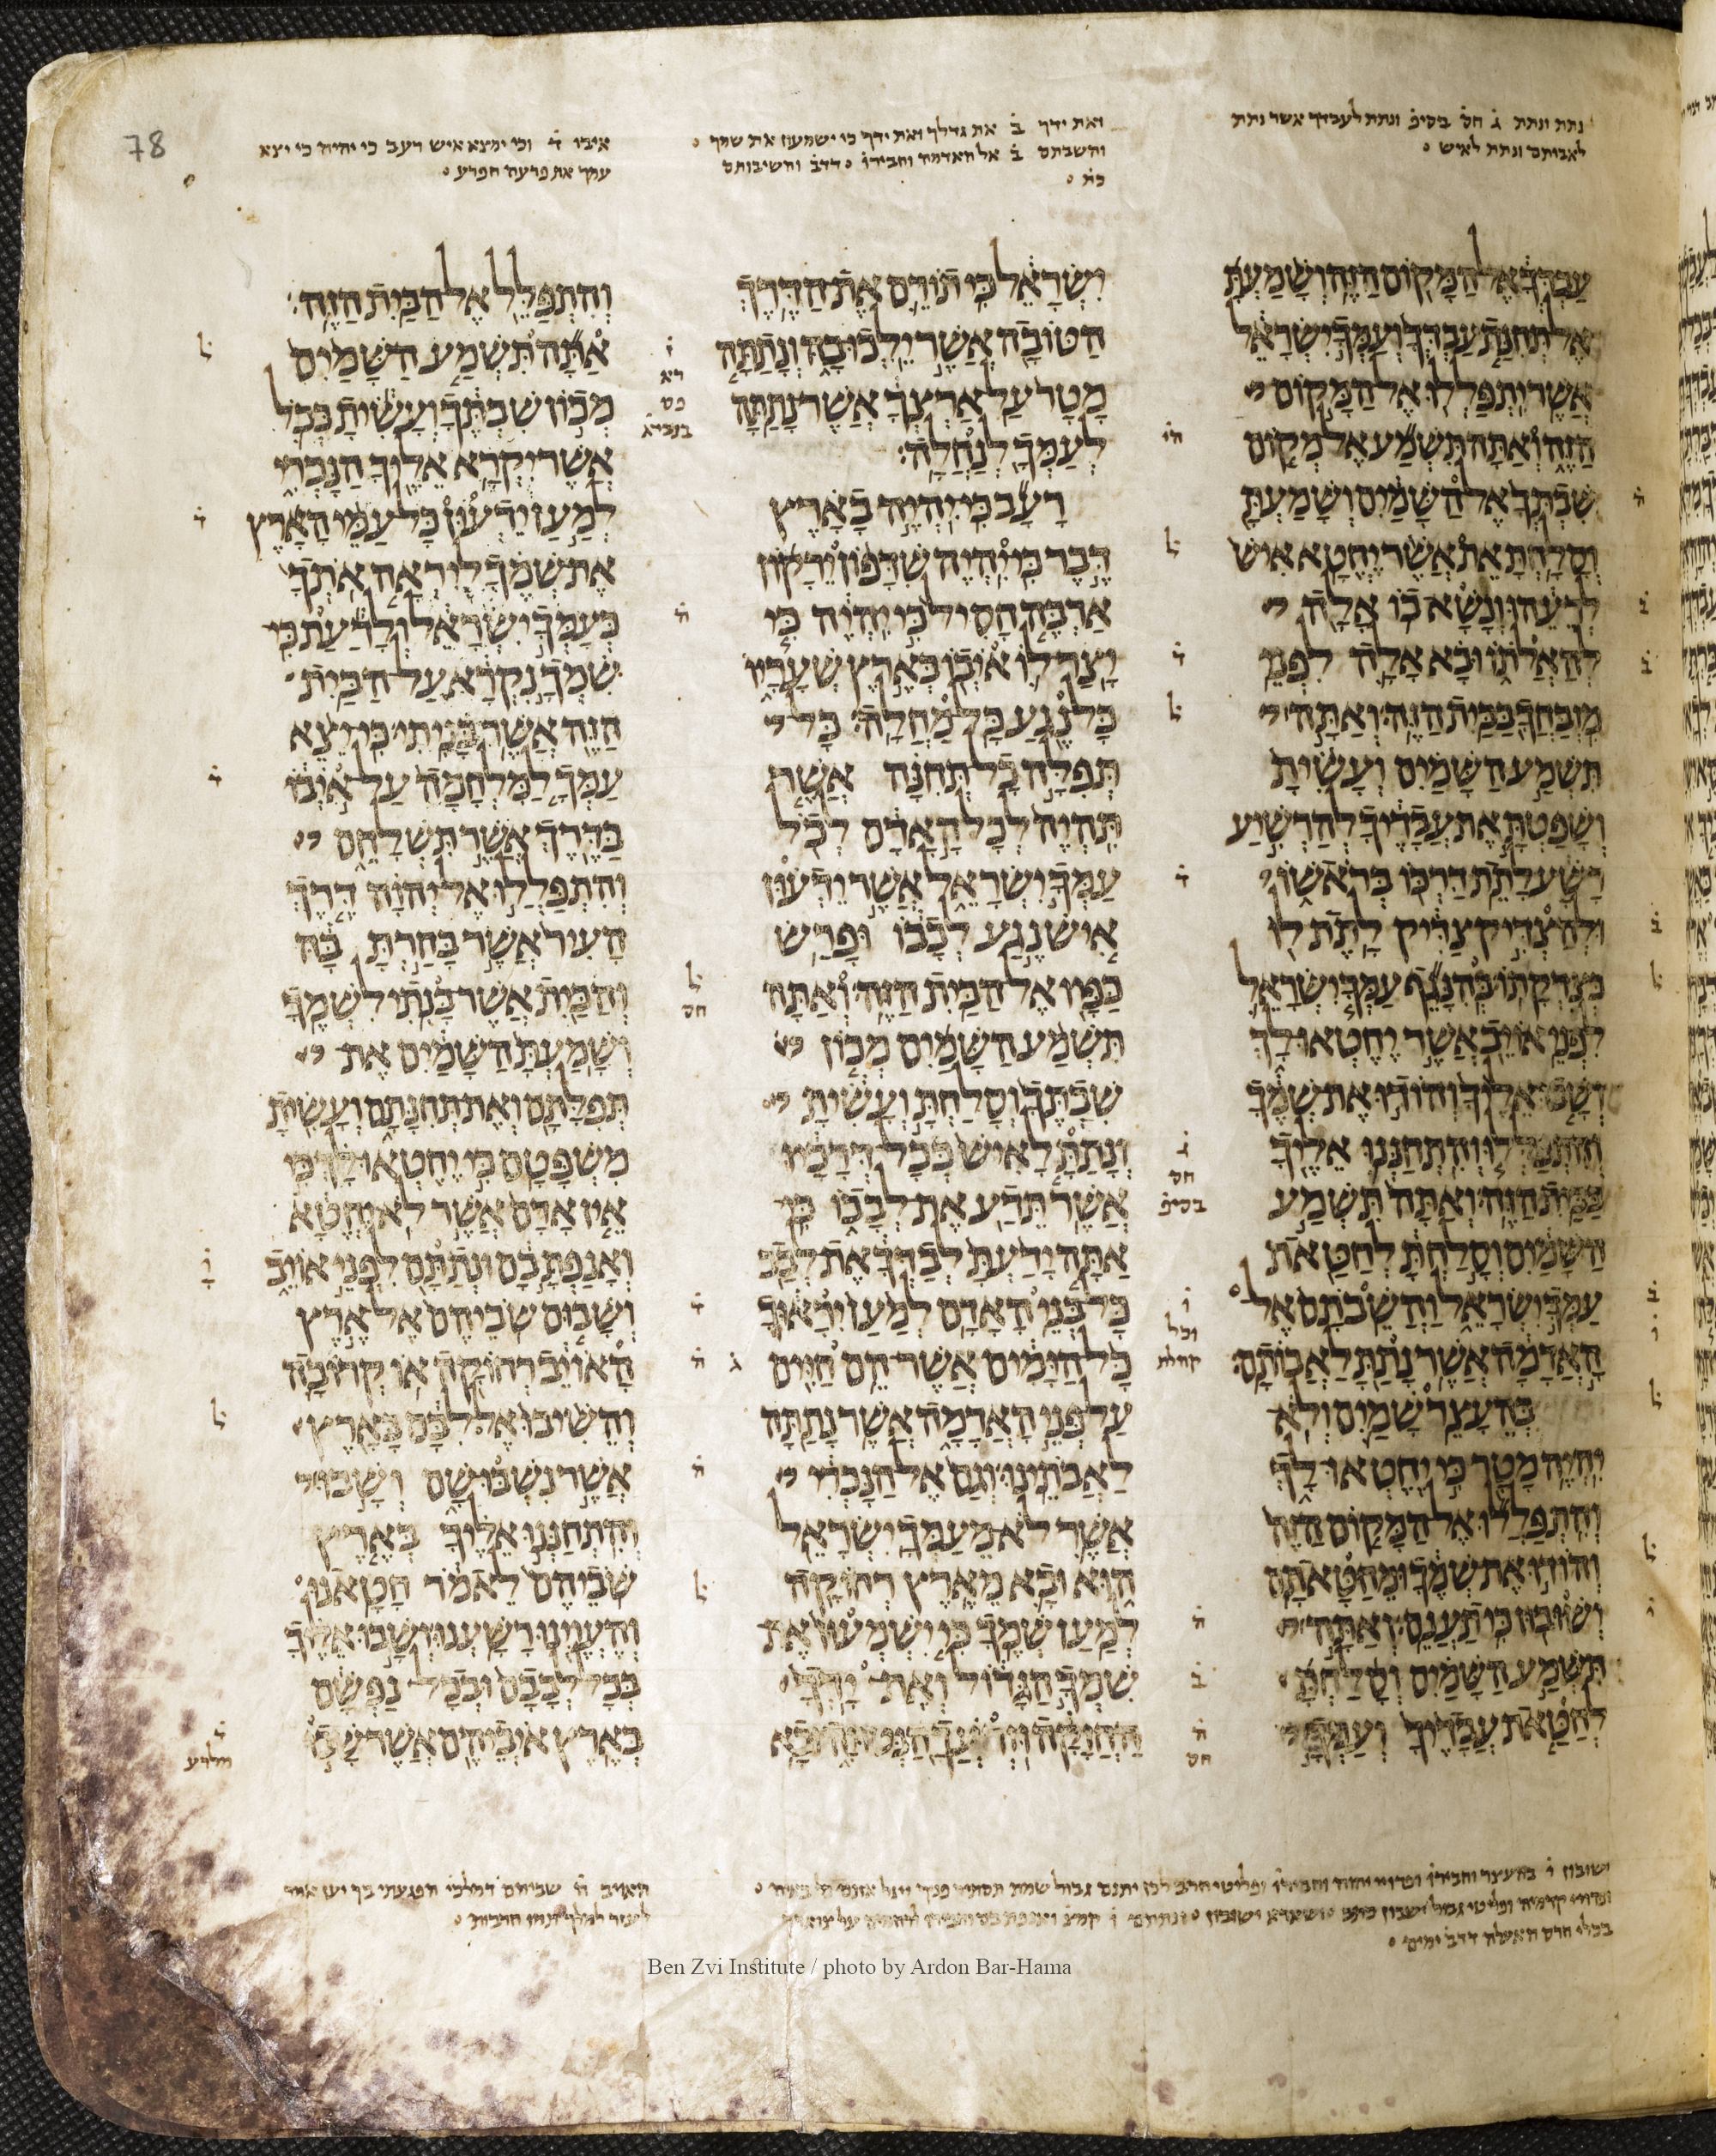 78
נתת ונתת ג חס בסיפ ונתת לעבדך אשר נתת
לאבותם ונתת לאיש
ואת ידך ב את גדלך ואת ידך כי ישמעון את שמך
והשבתם ב אל האדמה וחבירו דדב והשיבותם
כת
איבו ד וכי ימצא איש רעב כי יהיה כי יצא
עמך את פרעה חפרע
עַבְדְּךָ אֶל הַמָּקוֹם הַזֶּה וְשָׁמַעְתָּ
אֶל תְּחִנַּת עַבְדְּךָ וְעַמְּךָ יִשְׂרָאֵל
אֲשֶׁר יִתְפַּלְלוּ אֶל הַמָּקוֹם
הַזֶּה וְאַתָּה תִּשְׁמַע אֶל מְקוֹם
שִׁבְתְּךָ אֶל הַשָּׁמַיִם וְשָׁמַעְתָּ
וְסָלָחְתָּ אֵת אֲשֶׁר יֶחֱטָא אִישׁ
לְרֵעֵהוּ וְנָשָׁא בוֹ אָלָה
לְהַאֲלֹתוֹ וּבָא אָלָה לִפְנֵי
מִזְבַּחֲךָ בַּבַּיִת הַזֶּה וְאַתָּה
תִּשְׁמַע הַשָּׁמַיִם וְעָשִׂיתָ
וְשָׁפַטְתָּ אֶת עֲבָדֶיךָ לְהַרְשִׁיעַ
רָשָׁע לָתֵת דַּרְכּוֹ בְּרֹאשׁוֹ
וּלְהַצְדִּיק צַדִּיק לָתֶת לוֹ
כְּצִדְקָתוֹ בְּהִנָּגֵף עַמְּךָ יִשְׂרָאֵל
לִפְנֵי אוֹיֵב אֲשֶׁר יֶחֶטְאוּ לָךְ
וְשָׁבוּ אֵלֶיךָ וְהוֹדוּ אֶת שְׁמֶךָ
וְהִתְפַּלְלוּ וְהִתְחַנְּנוּ אֵלֶיךָ
בַּבַּיִת הַזֶּה וְאַתָּה תִּשְׁמַע
הַשָּׁמַיִם וְסָלַחְתָּ לְחַטַּאת
עַמְּךָ יִשְׂרָאֵל וַהֲשֵׁבֹתָם אֶל
הָאֲדָמָה אֲשֶׁר נָתַתָּ לַאֲבוֹתָם
בְּהֵעָצֵר שָׁמַיִם וְלֹא
יִהְיֶה מָטָר כִּי יֶחֶטְאוּ לָךְ
וְהִתְפַּלְלוּ אֶל הַמָּקוֹם הַזֶּה
וְהוֹדוּ אֶת שְׁמֶךָ וּמֵחַטָּאתָם
יְשׁוּבוּן כִּי תַעֲנֵם וְאַתָּה
תִּשְׁמַע הַשָּׁמַיִם וְסָלַחְתָּ
לְחַטַּאת עֲבָדֶיךָ וְעַמְּךָ
יִשְׂרָאֵל כִּי תוֹרֵם אֶת הַדֶּרֶךְ
הַטּוֹבָה אֲשֶׁר יֵלְכוּ בָהּ וְנָתַתָּה
מָטָר עַל אַרְצְךָ אֲשֶׁר נָתַתָּה
לְעַמְּךָ לְנַחֲלָה
רָעָב כִּי יִהְיֶה בָאָרֶץ
דֶּבֶר כִּי יִהְיֶה שִׁדָּפוֹן יֵרָקוֹן
אַרְבֶּה חָסִיל כִּי יִהְיֶה כִּי
יָצַר לוֹ אוֹיְבוֹ בְּאֶרֶץ שְׁעָרָיו
כָּל נֶגַע כָּל מַחֲלָה כָּל
תְּפִלָּה כָל תְּחִנָּה אֲשֶׁר
תִּהְיֶה לְכָל הָאָדָם לְכֹל
עַמְּךָ יִשְׂרָאֵל אֲשֶׁר יֵדְעוּן
אִישׁ נֶגַע לְבָבוֹ וּפָרַשׂ
כַּפָּיו אֶל הַבַּיִת הַזֶּה וְאַתָּה
תִּשְׁמַע הַשָּׁמַיִם מְכוֹן
שִׁבְתֶּךָ וְסָלַחְתָּ וְעָשִׂיתָ
וְנָתַתָּ לָאִישׁ כְּכָל דְּרָכָיו
אֲשֶׁר תֵּדַע אֶת לְבָבוֹ כִּי
אַתָּה יָדַעְתָּ לְבַדְּךָ אֶת לְבַב
כָּל בְּנֵי הָאָדָם לְמַעַן יִרָאוּךָ
כָּל הַיָּמִים אֲשֶׁר הֵם חַיִּים
עַל פְּנֵי הָאֲדָמָה אֲשֶׁר נָתַתָּה
לַאֲבֹתֵינוּ וְגַם אֶל הַנָּכְרִי
אֲשֶׁר לֹא מֵעַמְּךָ יִשְׂרָאֵל
הוּא וּבָא מֵאֶרֶץ רְחוֹקָה
לְמַעַן שְׁמֶךָ כִּי יִשְׁמְעוּן אֶת
שִׁמְךָ הַגָּדוֹל וְאֶת יָדְךָ
הַחֲזָקָה וּזְרֹעֲךָ הַנְּטוּיָה וּבָא
וְהִתְפַּלֵּל אֶל הַבַּיִת הַזֶּה
אַתָּה תִּשְׁמַע הַשָּׁמַיִם
מְכוֹן שִׁבְתֶּךָ וְעָשִׂיתָ כְּכֹל
אֲשֶׁר יִקְרָא אֵלֶיךָ הַנָּכְרִי
לְמַעַן יֵדְעוּן כָּל עַמֵּי הָאָרֶץ
אֶת שְׁמֶךָ לְיִרְאָה אֹתְךָ
כְּעַמְּךָ יִשְׂרָאֵל וְלָדַעַת כִּי
שִׁמְךָ נִקְרָא עַל הַבַּיִת
הַזֶּה אֲשֶׁר בָּנִיתִי כִּי יֵצֵא
עַמְּךָ לַמִּלְחָמָה עַל אֹיְבוֹ
בַּדֶּרֶךְ אֲשֶׁר תִּשְׁלָחֵם
וְהִתְפַּלְלוּ אֶל יְהוָה דֶּרֶךְ
הָעִיר אֲשֶׁר בָּחַרְתָּ בָּהּ
וְהַבַּיִת אֲשֶׁר בָּנִתִי לִשְׁמֶךָ
וְשָׁמַעְתָּ הַשָּׁמַיִם אֶת
תְּפִלָּתָם וְאֶת תְּחִנָּתָם וְעָשִׂיתָ
מִשְׁפָּטָם כִּי יֶחֶטְאוּ לָךְ כִּי
אֵין אָדָם אֲשֶׁר לֹא יֶחֱטָא
וְאָנַפְתָּ בָם וּנְתַתָּם לִפְנֵי אוֹיֵב
וְשָׁבוּם שֹׁבֵיהֶם אֶל אֶרֶץ
הָאוֹיֵב רְחוֹקָה אוֹ קְרוֹבָה
וְהֵשִׁיבוּ אֶל לִבָּם בָּאָרֶץ
אֲשֶׁר נִשְׁבּוּ שָׁם וְשָׁבוּ
וְהִתְחַנְּנוּ אֵלֶיךָ בְּאֶרֶץ
שֹׁבֵיהֶם לֵאמֹר חָטָאנוּ
וְהֶעֱוִינוּ רָשָׁעְנוּ וְשָׁבוּ אֵלֶיךָ
בְּכָל לְבָבָם וּבְכָל נַפְשָׁם
בְּאֶרֶץ אֹיְבֵיהֶם אֲשֶׁר שָׁבוּ
Ben Zvi Institute / photo by Ardon Bar-Hama